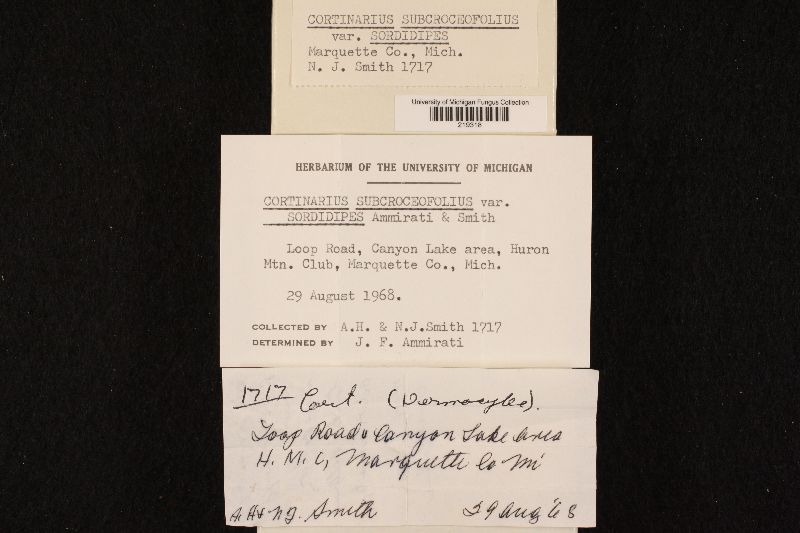 CORTINARIUS SUBCROCEOFOLIUS
var. SORDIDIPES
Marquette Co., Mich.
N. J. Smith 1717
University of Michigan Fungus Collection
219318
HERBARIUM OF THE UNIVERSITY OF MICHIGAN
CORTINARIUS SUBCROCEOFOLIUS var.
SORDIDIPES Ammirati & Smith
Loop Road, Canyon Lake area, Huron
Mtn. Club, Marquette Co., Mich.
29 August 1968.
COLLECTED BY A.H. & N.J.Smith 1717
DETERMINED BY J. F. Ammirati
1717 Cort. (Dermocybe).
Loop Road Canyon Lake area
H. M. C, Marquette Co Mi
A.H & N J. Smith 29 Aug '68